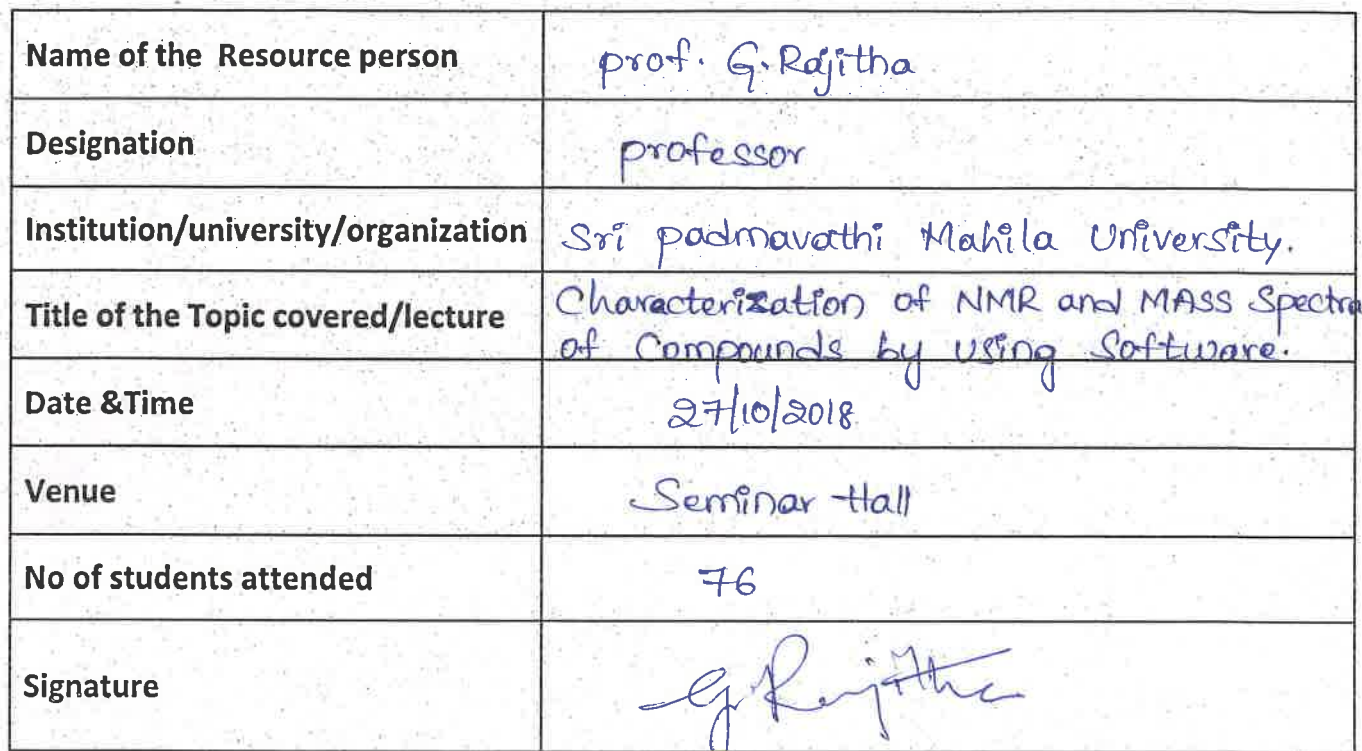 Name of the Resource person prof. G. Rajitha
Designation professor
Institution/university/organization Sri padmavathi Mahila University.
Title of the Topic covered/lecture Characterization of NMR and MASS Spectra
of Compounds by using Software.
Date &Time 27/10/2018
Venue Seminar Hall
No of students attended 76
Signature G Rajitha